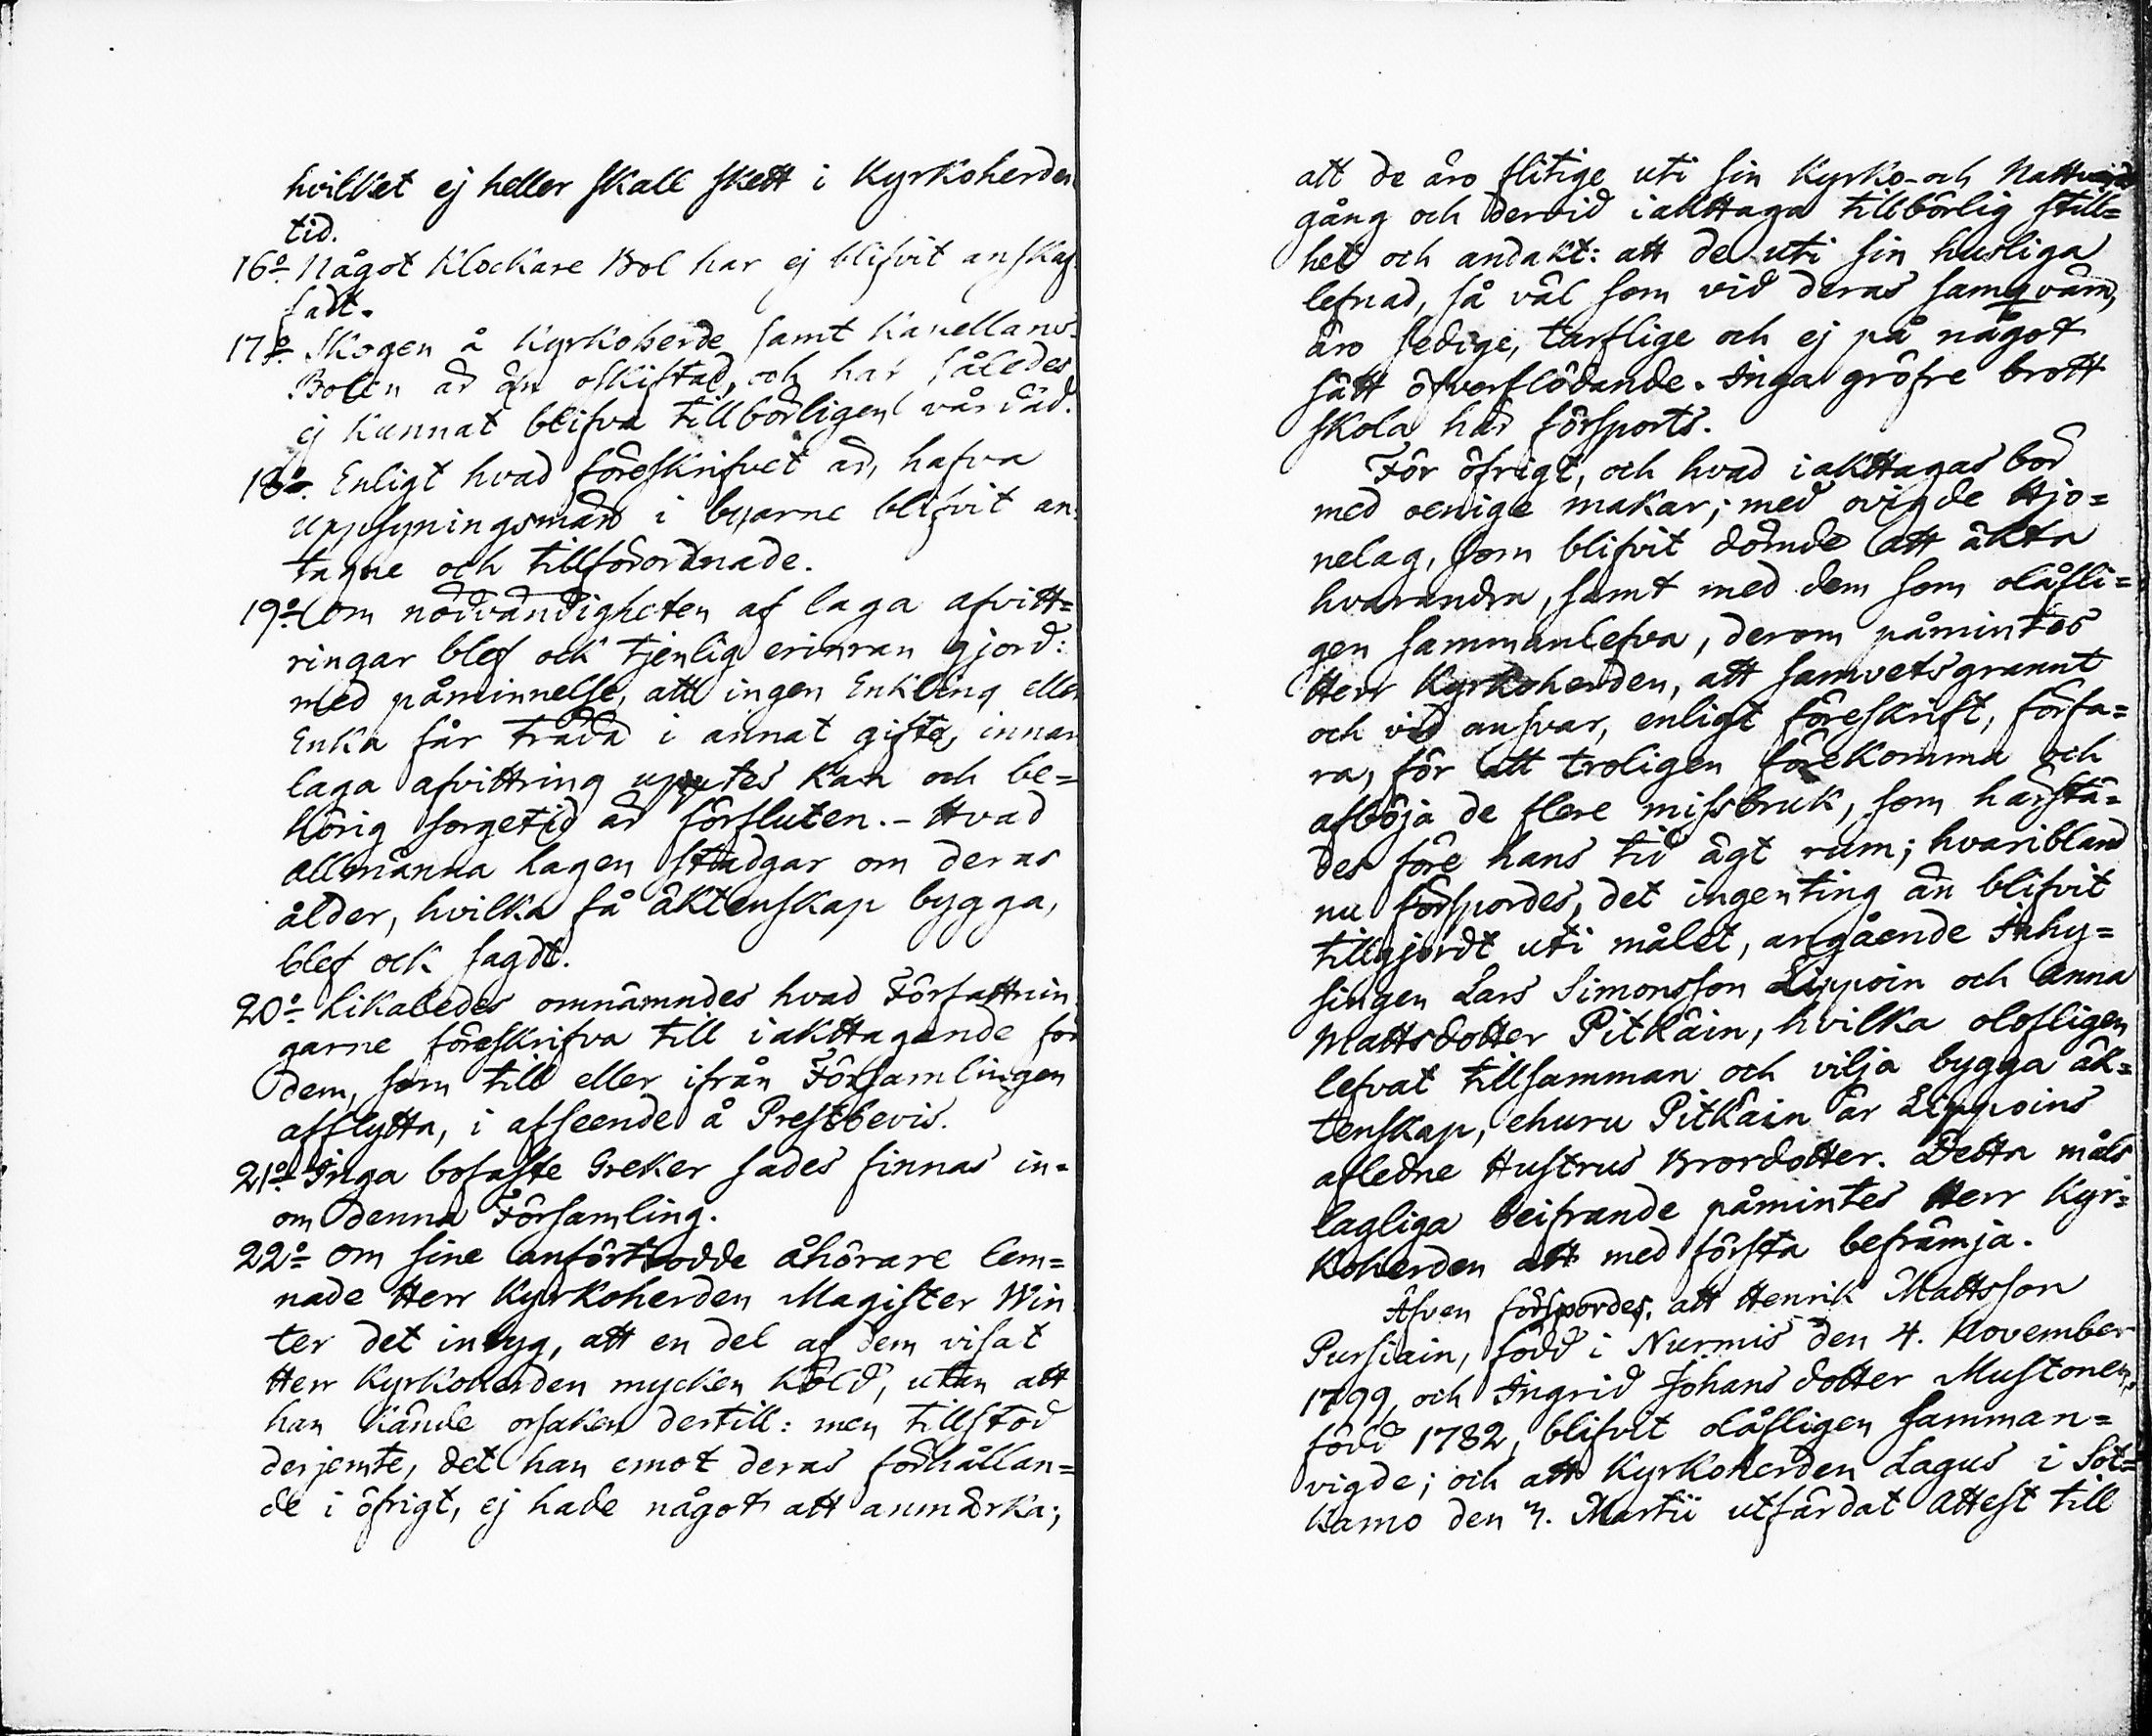 hvilket ej heller skall skett i Kyrkoherden
tid.
16o Något Klockare Bol har ej blifvit anskaf
fadt.
17o Skogen å Kyrkoherde samt Kapellans-
Bolen är än oskiftad, och har således
ej kunnat blifva tillbörligen vårdad.
18o Enligt hvad föreskrifvet är, hafva
uppsyningsmän i byarne blifvit an-
tagne och tillförordnade.
19o Om nödvändigheten af laga afvitt=
ringar blef ock tjenlig erinran gjord:
med påminnelse, att ingen Enkling eller
Enka får träda i annat gifte, innan
laga afvittring uppetes kan och be=
hörig sorgetid är försluten. – Hvad
Allmänna Lagen stadgar om deras
ålder, hvilka få äktenskap bygga,
blef ock sagdt.
20o Likaledes omnämndes hvad Författnin
garne föreskrifva till iakttagande för
dem, som till eller ifrån Församlingen
afflytta, i afseende å Prestbevis.
21o Inga bofaste Greker sades finnas in=
om denna Församling.
22o Om sine anförtrodde åhörare lem=
nade Herr Kyrkoherden Magister Win
ter det intyg, att en del af dem visat
Herr Kyrkoherden mycken köld, utan att
han kände orsaken dertill: men tillstod
derjemte, det han emot deras förhållan=
de i öfrigt, ej hade något att anmärka;
att de äro flitige uti sin Kyrko- och Nattvards
gång och dervid iakttaga tillbörlig still=
het och andakt: att de uti sin husliga
lefnad, så väl som vid deras samqväm,
äro sedige, tarflige och ej på något
sätt öfverflödande. Inga gröfre brott
skola här försports.
För öfrigt, och hvad iakttagas bör
med oenige makar; med ovigde Hjo=
nelag, som blifvit dömde att äkta
hvarandra, samt med dem som olåfli=
gen sammanlefva, derom påmintes
Herr Kyrkoherden, att samvetsgrannt
och vid ansvar, enligt föreskrift, förfa=
ra, för att troligen förekomma och
afböja de flere missbruk, som härstä=
des före hans tid ägt rum; hvaribland
nu förspordes, det ingenting än blifvit
tillgjordt uti målet, angående Inhy=
singen Lars Simonsson Lippoin och Anna
Mattsdotter Pitkäin, hvilka olofligen
lefvat tillsamman och vilja bygga äk=
tenskap, ehuru Pitkäin är Lippoins
afledne Hustrus Brorsdotter. Detta måls
lagliga beifrande påmintes Herr Kyr=
koherden att med första befrämja.
Äfven förspordes, att Henrik Mattsson
Pursiain, född i Nurmis den 4. November
1799, och Ingrid Johansdotter Mustonen,
född 1782, blifvit olåfligen samman=
vigde; och att Kyrkoherden Lagus i Sot=
kamo den 7. Martii utfärdat Attest till